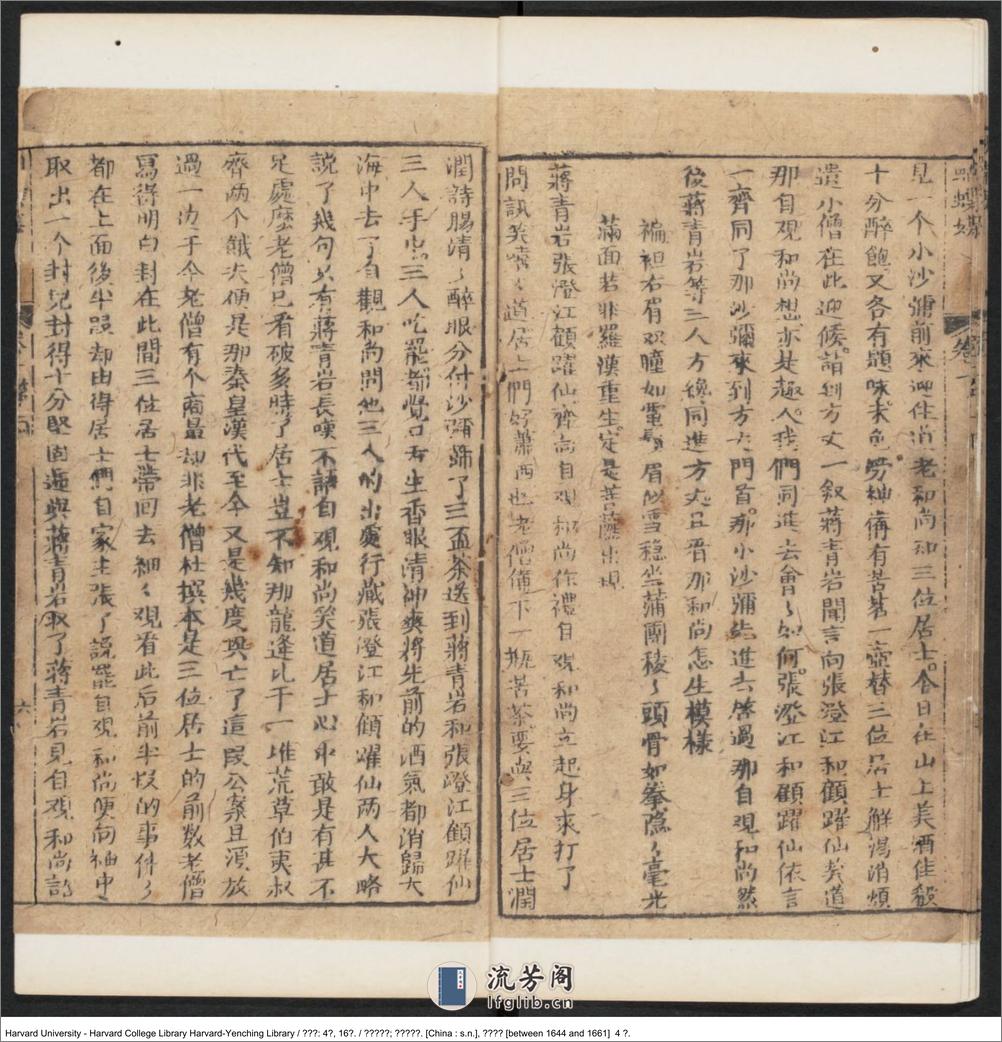 蝴蝶媒
卷一
見一个小沙彌前來迎住道老和尚知三位居士今日在山上美酒佳殽
十分醉飽又各有題咏未免勞神備有苦茗一壺替三位居士解渴消煩
遣小僧在此迎候請到方丈一叙蔣青岩聞言向張澄江和顧躍仙笑道
那自觀和尚想亦是趣人我們同進去會々如何張澄江和顧躍仙依言
一齊同了那沙彌來到方丈門首那小沙彌先進去啓過那自觀和尚然
後蔣青岩等三人方纔同進方丈且看那和尚怎生模樣
褊袒右肩双瞳如電龎眉似雪穏坐蒲團稜々頭骨如拳隱々毫光
滿面若非羅漢重生定是菩薩出現
蔣青岩張澄江顧躍仙齊向自观和尚作禮自观和尚立起身來打了
問訊笑嘻々道居士們好蕭洒也老僧備下一瓶苦茶要與三位居士潤
潤詩腸清々醉眼分付沙彌斟了三盃茶送到蔣青岩和張澄江顧躍仙
三人手裡三人吃罷都覺口內生香眼清神爽將先前的酒氣都消歸大
海中去了自觀和尚問他三人的出處行藏張澄江和顧躍仙兩人大略
説了幾句只有蔣青岩長嘆不語自观和尚笑道居士心中敢是有甚不
足處麽老僧已看破多時了居士豈不知那龍逢比干一堆荒草伯夷叔
齊两个餓夫便是那秦皇漢代至今又是幾度興亡了這叚公案且須放
過一边于今老僧有个商量却非老僧杜撰本是三位居士的前数老僧
寫得明白封在此間三位居士帶回去細々观看此后前半叚的事件々
都在上面後半叚却由得居士們自家主張了說罷自观和尚便向袖中
取出一个封兒封得十分堅固遞與蔣青岩取了蔣青岩見自观和尚説
六
流芳阁
lfglib.cn
Harvard University - Harvard College Library Harvard-Yenching Library / ???: 4?, 16?. / ?????; ?????. [China : s.n.], ???? [between 1644 and 1661] 4 ?.